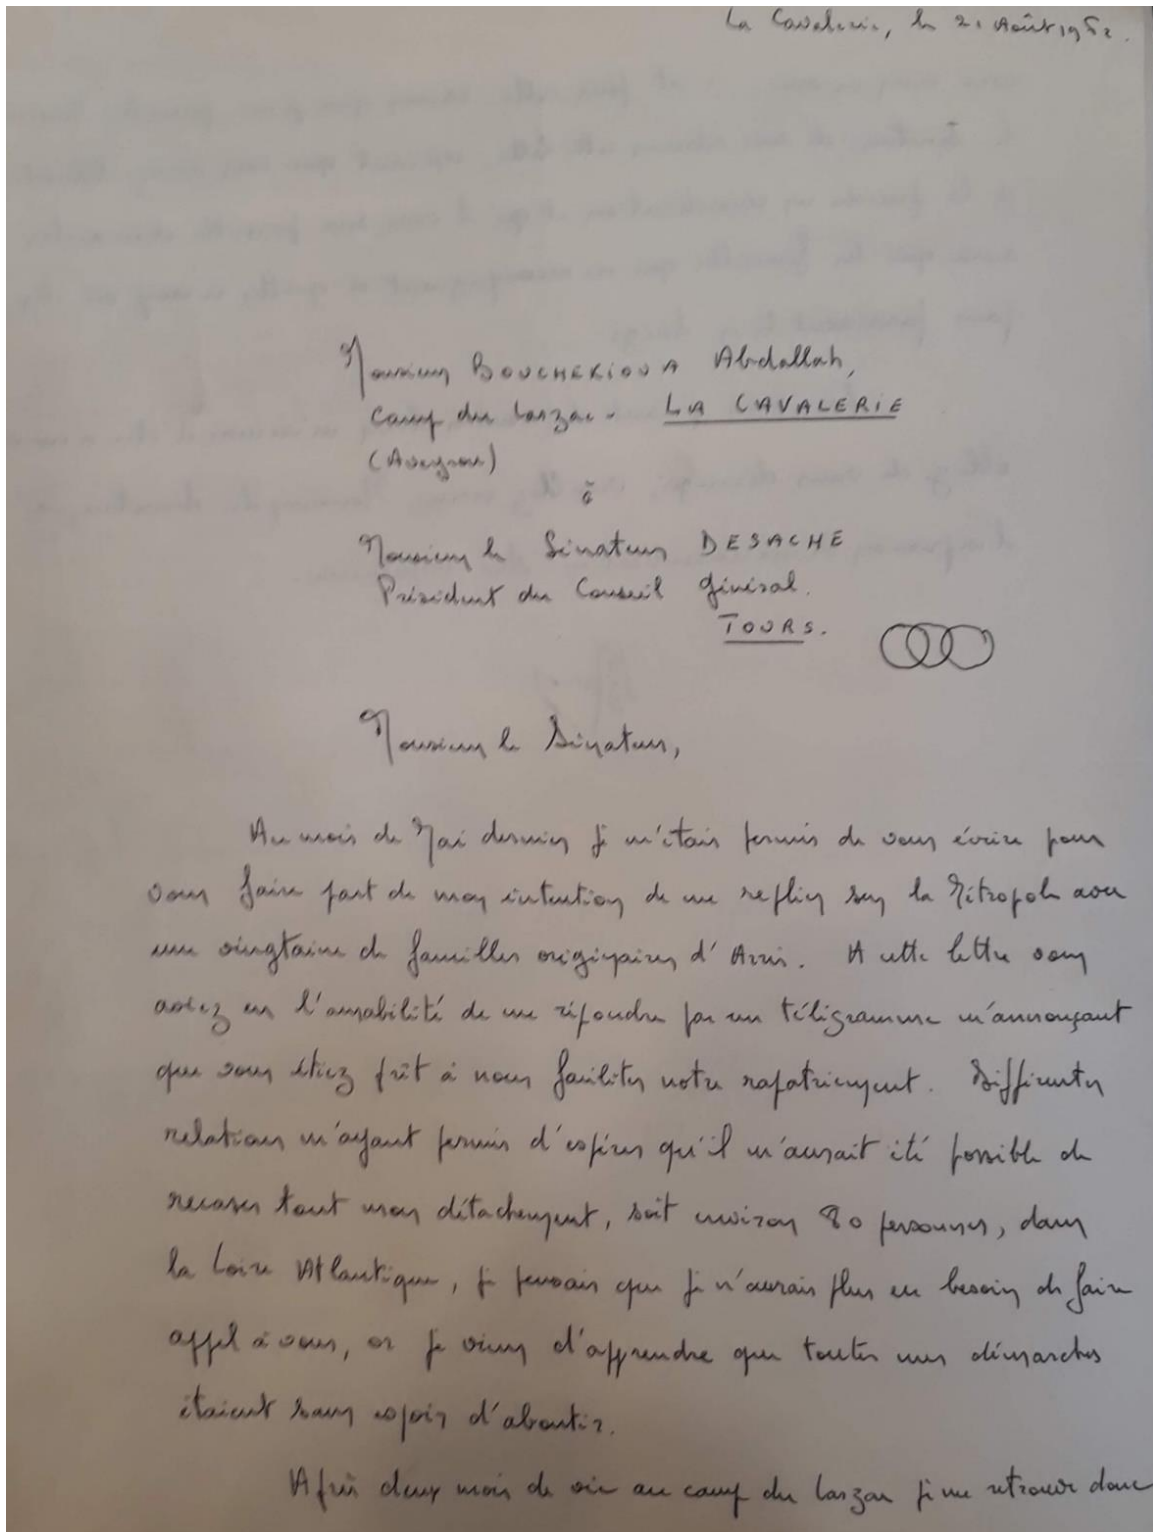 La Cavalerie, le 21 Août 1962.
Monsieur BOUCHEKIOUA Abdallah,
Camp du Larzac - LA CAVALERIE
(Aveyron)
à
Monsieur le Sénateur DESACHE
Président du Conseil Général.
TOURS.
Monsieur le Sénateur,
Au mois de Mai dernier je m'étais permis de vous écrire pour
vous faire part de mon intention de me replier sur la Métropole avec
une vingtaine de familles originaires d'Arris. A cette lettre vous
aviez eu l'amabilité de me répondre par un télégramme m'annonçant
que vous étiez prêt à nous faciliter notre rapatriement. Différentes
relations m'ayant permis d'espérer qu'il m'aurait été possible de
recaser tout mon détachement, soit environ 80 personnes, dans
la Loire Atlantique, je pensais que je n'aurais plus eu besoin de faire
appel à vous, or je viens d'apprendre que toutes mes démarches
étaient sans espoir d'aboutir.
Après deux mois de vie au camp du Larzac je me retrouve donc